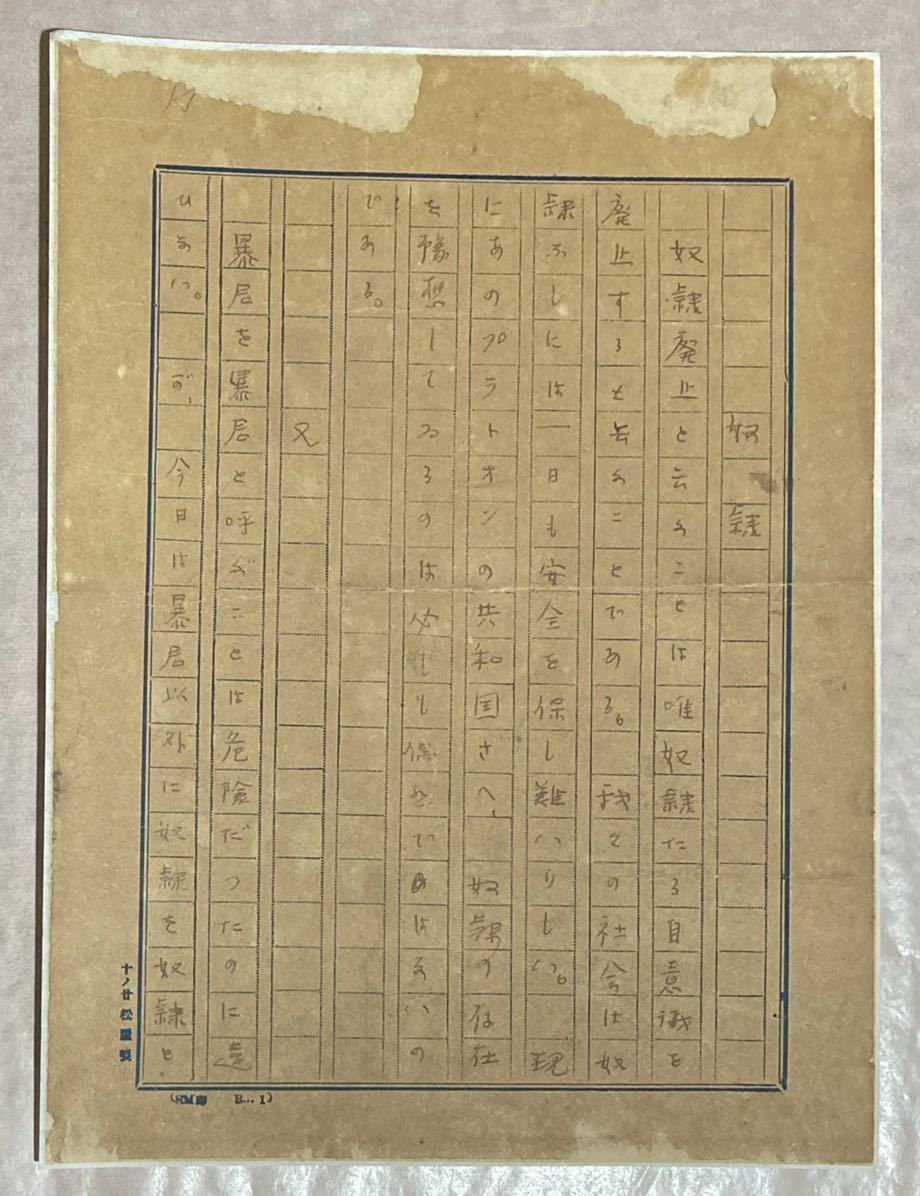 奴隷
奴隷廃止と云ふことは唯奴隷たる自意識を
廃止すると云ふことである。我々の社会は奴
隷なしには一日も安全を保し難いらしい。現
にあのプラトオンの共和国さへ、奴隷の存在
を豫想してゐるのは必しも偶然ではないの
である。
又
暴君を暴君と呼ぶことは危険だつたのに違
ひない。が、今日は暴君以外に奴隷を奴隷と
十ノ廿松屋製
(SM印 B…1)